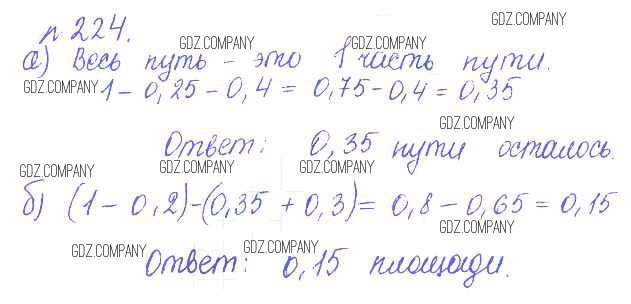 GDZ.COMPANY
п 224.
GDZ.COMPANY GDZ.COMPANY
а) Весь путь - это 1 часть пути.
GDZ.COMPANY 1 - 0,25 - 0,4 = 0,75 - 0,4 = 0,35
GDZ.COMPANY
Ответ: 0,35 пути осталось.
GDZ.COMPANY GDZ.COMPANY GDZ.COMPANY
б) (1 - 0,2)-(0,35 + 0,3)= 0,8 - 0,65 = 0,15
GDZ.COMPANY
GDZ.COMPANY GDZ.COMPANY
Ответ: 0,15 площади.